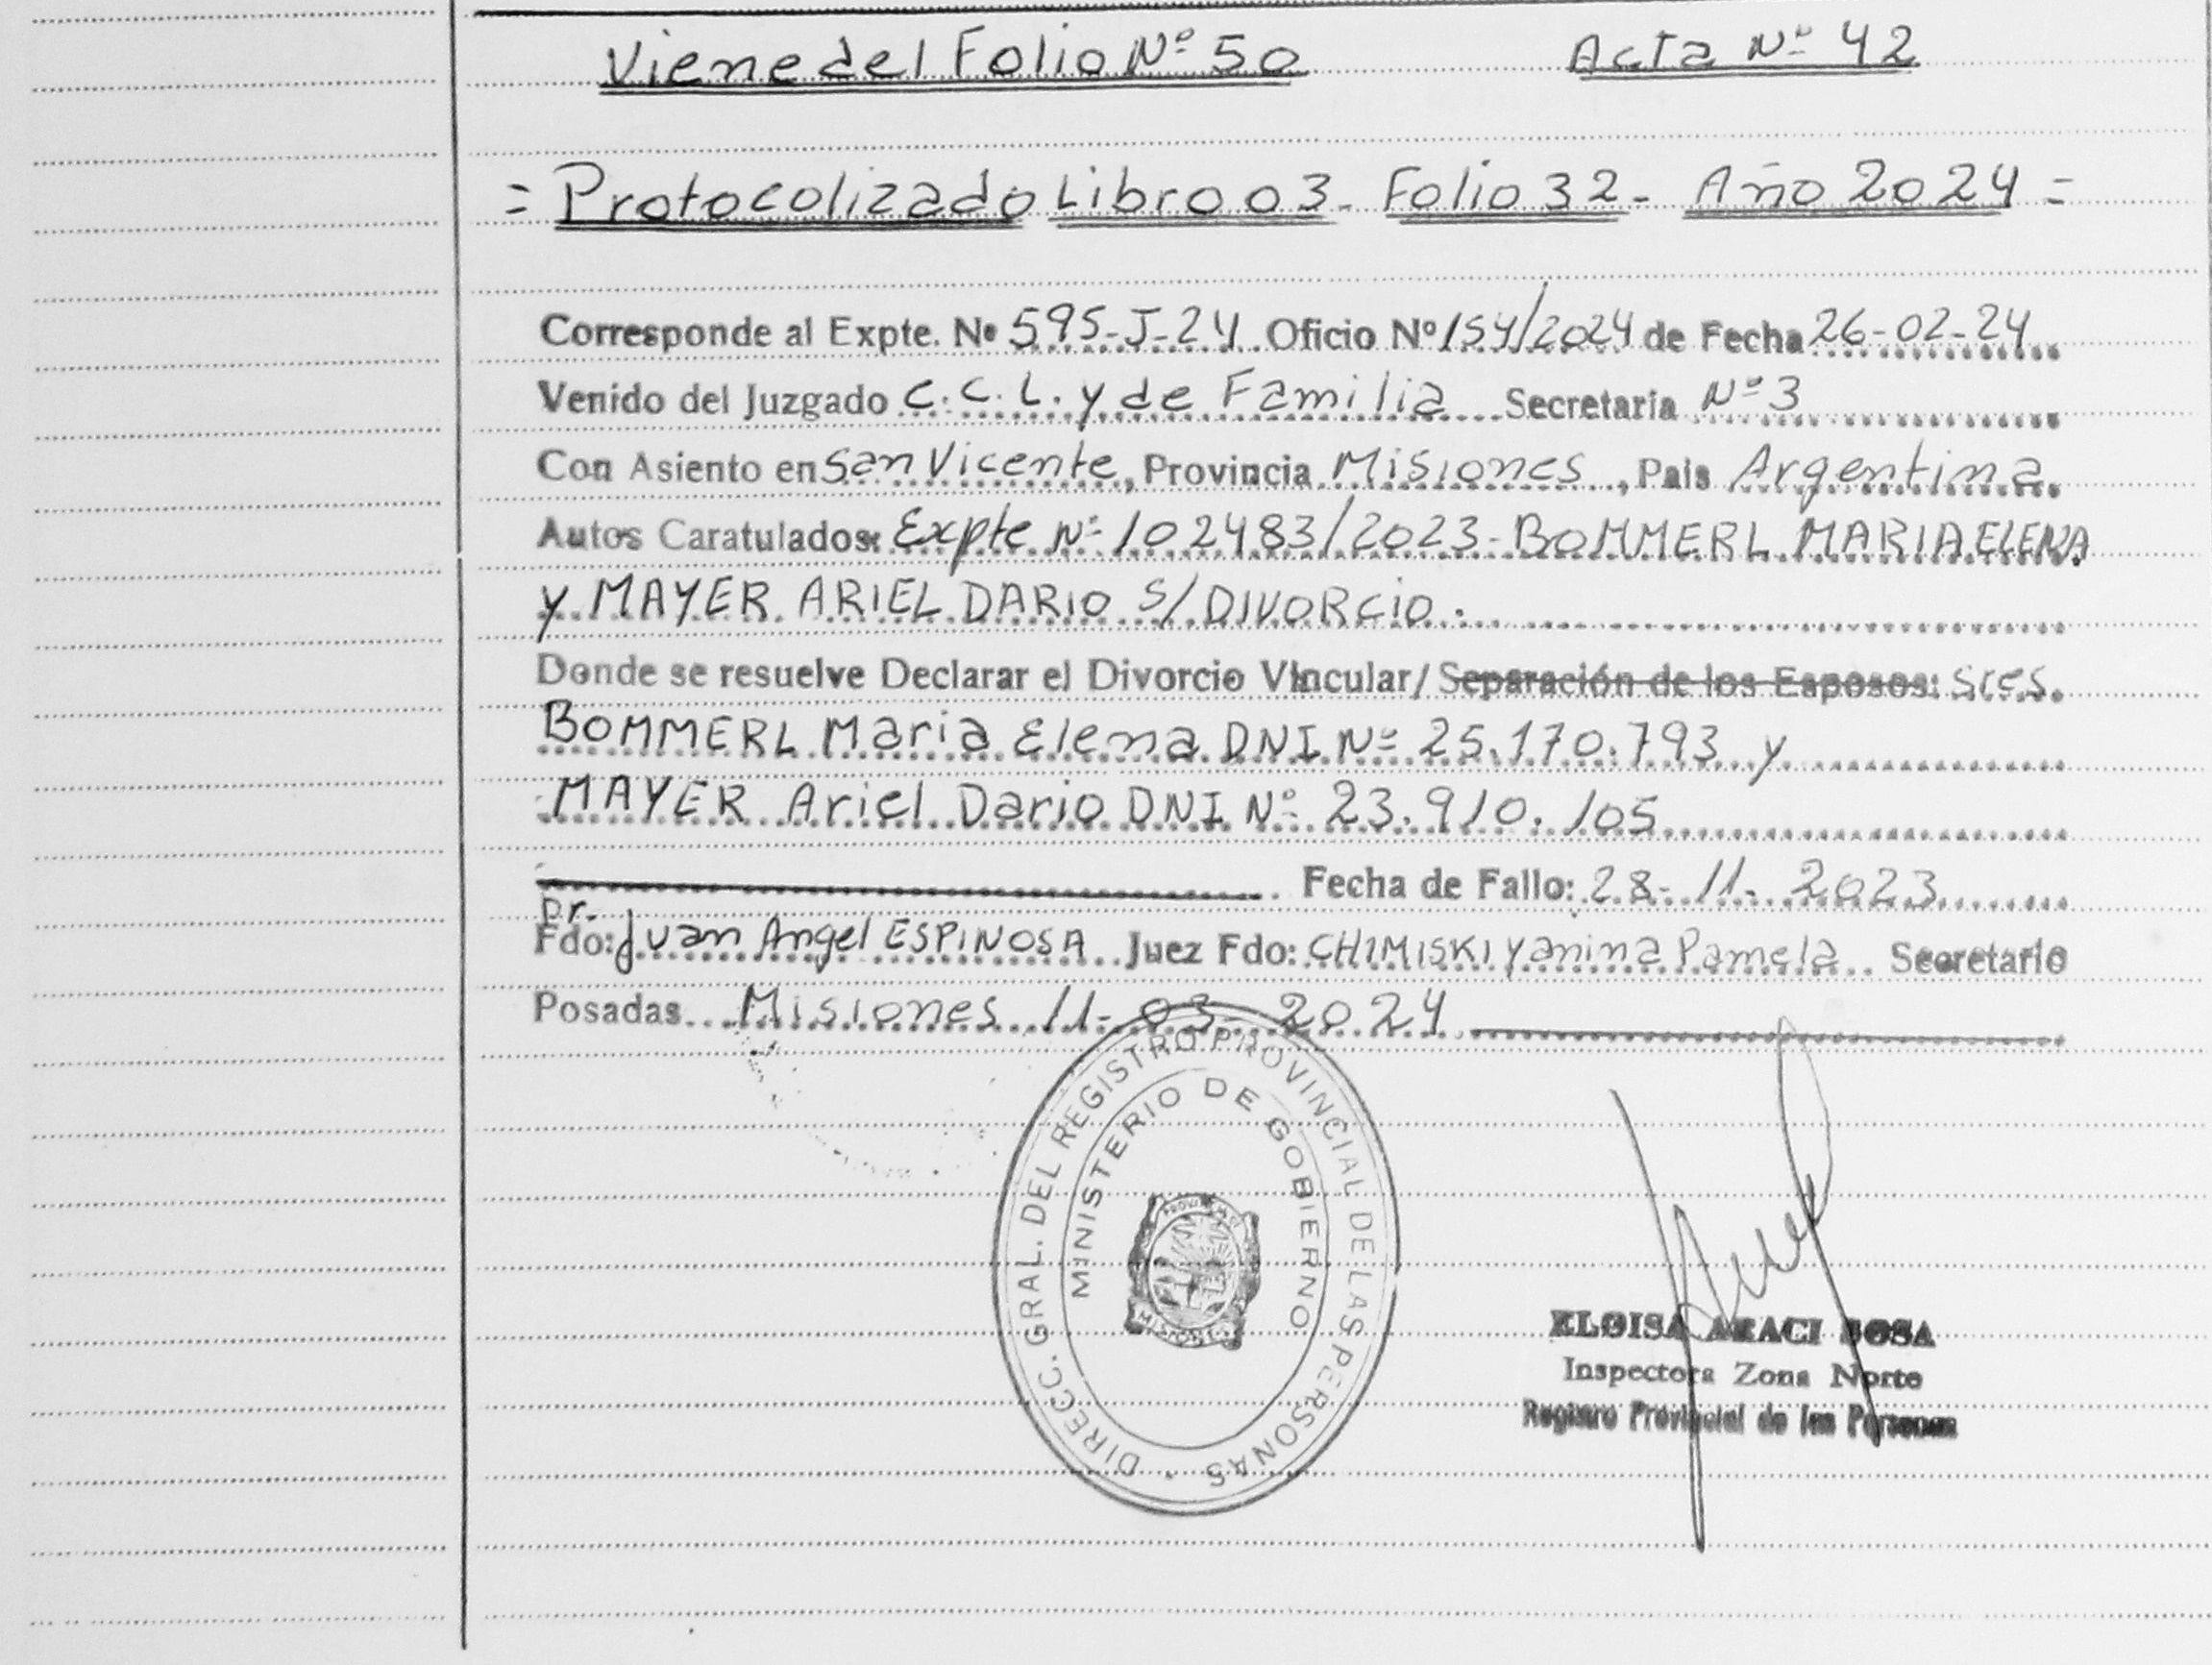 Viene del Folio Nº 50 Acta Nº 42
= Protocolizado Libro 03 - Folio 32 - Año 2024 =
Corresponde al Expte. Nº 595-J-24 Oficio Nº 154/2024 de Fecha 26-02-24
Venido del Juzgado C.C.L. y de Familia Secretaria Nº 3
Con Asiento en San Vicente, Provincia Misiones, Pais Argentina.
Autos Caratulados: Expte Nº 102483/2023 - BOMMERL MARIA ELENA
y MAYER ARIEL DARIO S/DIVORCIO.
Donde se resuelve Declarar el Divorcio Vincular/ Separación de los Esposos: Sres.
BOMMERL Maria Elena DNI Nº 25.170.793 y
MAYER Ariel Dario DNI Nº 23.910.105
Fecha de Fallo: 28-11-2023
Dr.
Fdo: Juan Angel ESPINOSA Juez Fdo: CHIMISKI Yanina Pamela Secretario
Posadas Misiones 11-03-2024
DIRECC. GRAL. DEL REGISTRO PROVINCIAL DE LAS PERSONAS
MINISTERIO DE GOBIERNO
MISIONES
ELOISA ARACI SOSA
Inspectora Zona Norte
Registro Provincial de las Personas